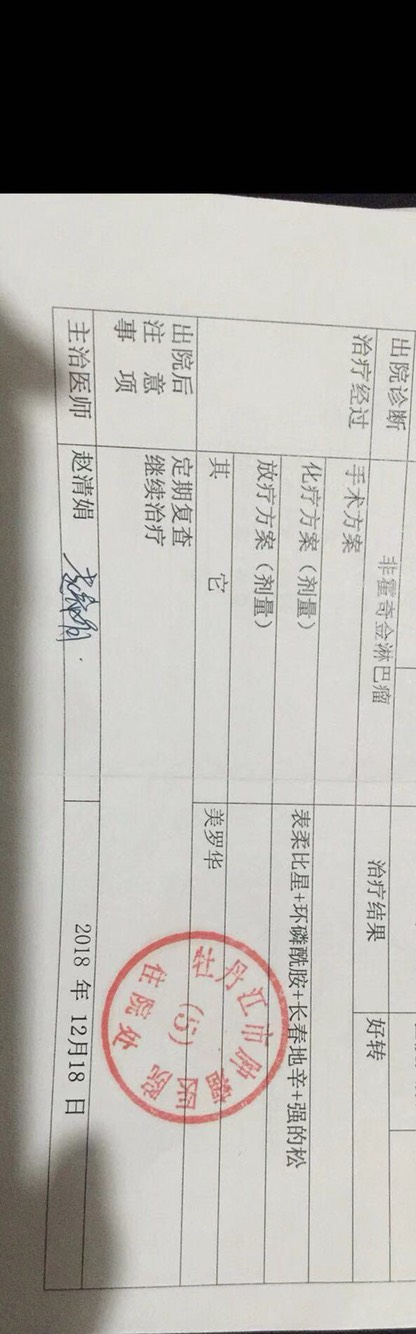 出院诊断 非霍奇金淋巴瘤 治疗结果 好转
治疗经过 手术方案
化疗方案（剂量） 表柔比星+环磷酰胺+长春地辛+强的松
放疗方案（剂量）
其 它 美罗华
出院后
注 意
事 项
定期复查
继续治疗
主治医师 赵清娟 2018 年 12月18 日
牡丹江市肿瘤医院
(5)
住院处